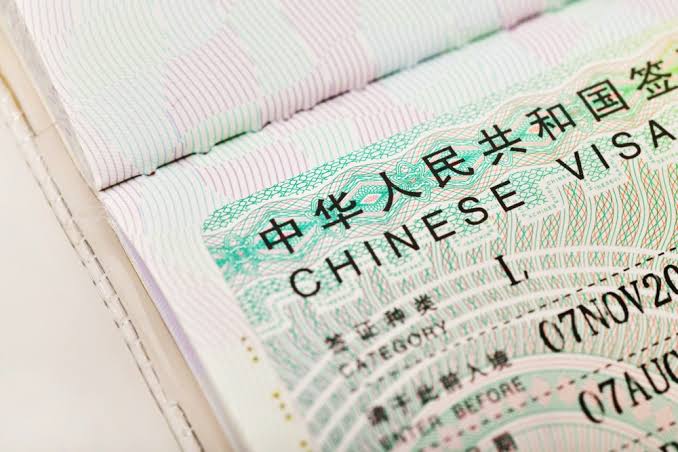 中华人民共和国签
CHINESE VISA
签证种类 L
CATEGORY 07NOV20
请于此前入境
ENTER BEFORE 07AUG